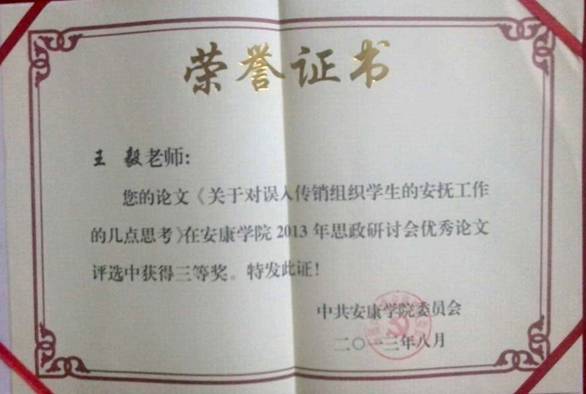 荣誉证书
王毅老师:
您的论文《关于对误入传销组织学生的安抚工作
的几点思考》在安康学院2013年思政研讨会优秀论文
评选中获得三等奖。特发此证!
中共安康学院委员会
二〇一三年八月